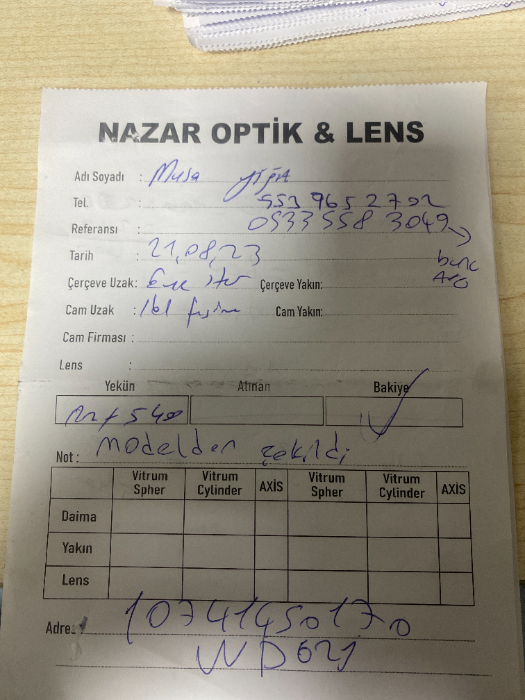 NAZAR OPTİK & LENS
Adı Soyadı : Musa
Tel. : 553 965 2702
Referansı : 0533 558 3049
Tarih : 21,08,23
Çerçeve Uzak: Çerçeve Yakın:
Cam Uzak : Cam Yakın:
Cam Firması :
Lens :
Yekün Alınan Bakiye
5400
Not : modelden çekildi
Vitrum Spher Vitrum Cylinder AXİS Vitrum Spher Vitrum Cylinder AXİS
Daima
Yakın
Lens
Adres 10741450170
WD621